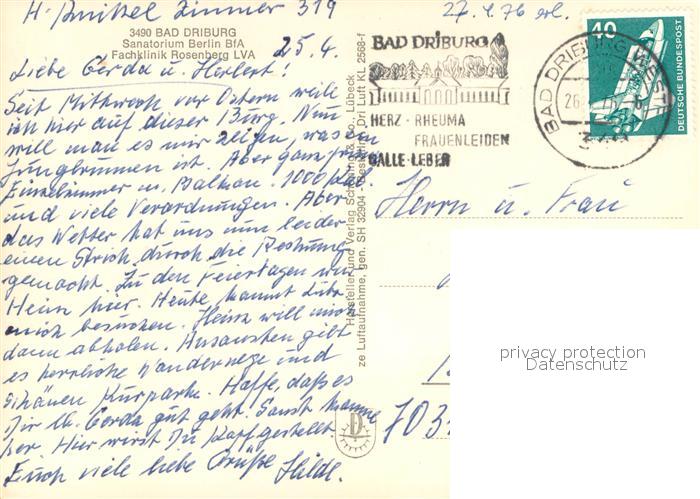 H. Zimmer 319
27.4.76 erl.
3490 BAD DRIBURG
Sanatorium Berlin BfA
Fachklinik Rosenberg LVA
25.4.
Liebe Gerda u. Herbert!
Seit Mittwoch vor Ostern weile
ich hier auf dieser Burg. Nun
will man es mir zeigen, was ein
Jungbrunnen ist. Aber ganz prima
Einzelzimmer m. Balkon. 1000 Kal.
und viele Verordnungen. Aber
das Wetter hat uns nun leider
einen Strich durch die Rechnung
gemacht. Zu den Feiertagen war
Heinz hier. Heute kommt
mich besuchen. Heinz will mich
dann abholen. Ansonsten gibt
es herrliche Wanderwege und
schönen Kurpark. Hoffe, daß es
Dir lb. Gerda gut geht. Sonst komme
her. Hier wirst Du Kopf gestellt
Euch viele liebe Grüße Hilde.
Hersteller und Verlag Schöning & Co., Lübeck
ze Luftaufnahme, gen. SH 32904 Dr. Luft KL 2568-f
BAD DRIBURG
HERZ - RHEUMA
FRAUENLEIDEN
GALLE-LEBER
BAD DRIBURG WESTF
26
40
DEUTSCHE BUNDESPOST
Herrn u. Frau
703
privacy protection
Datenschutz